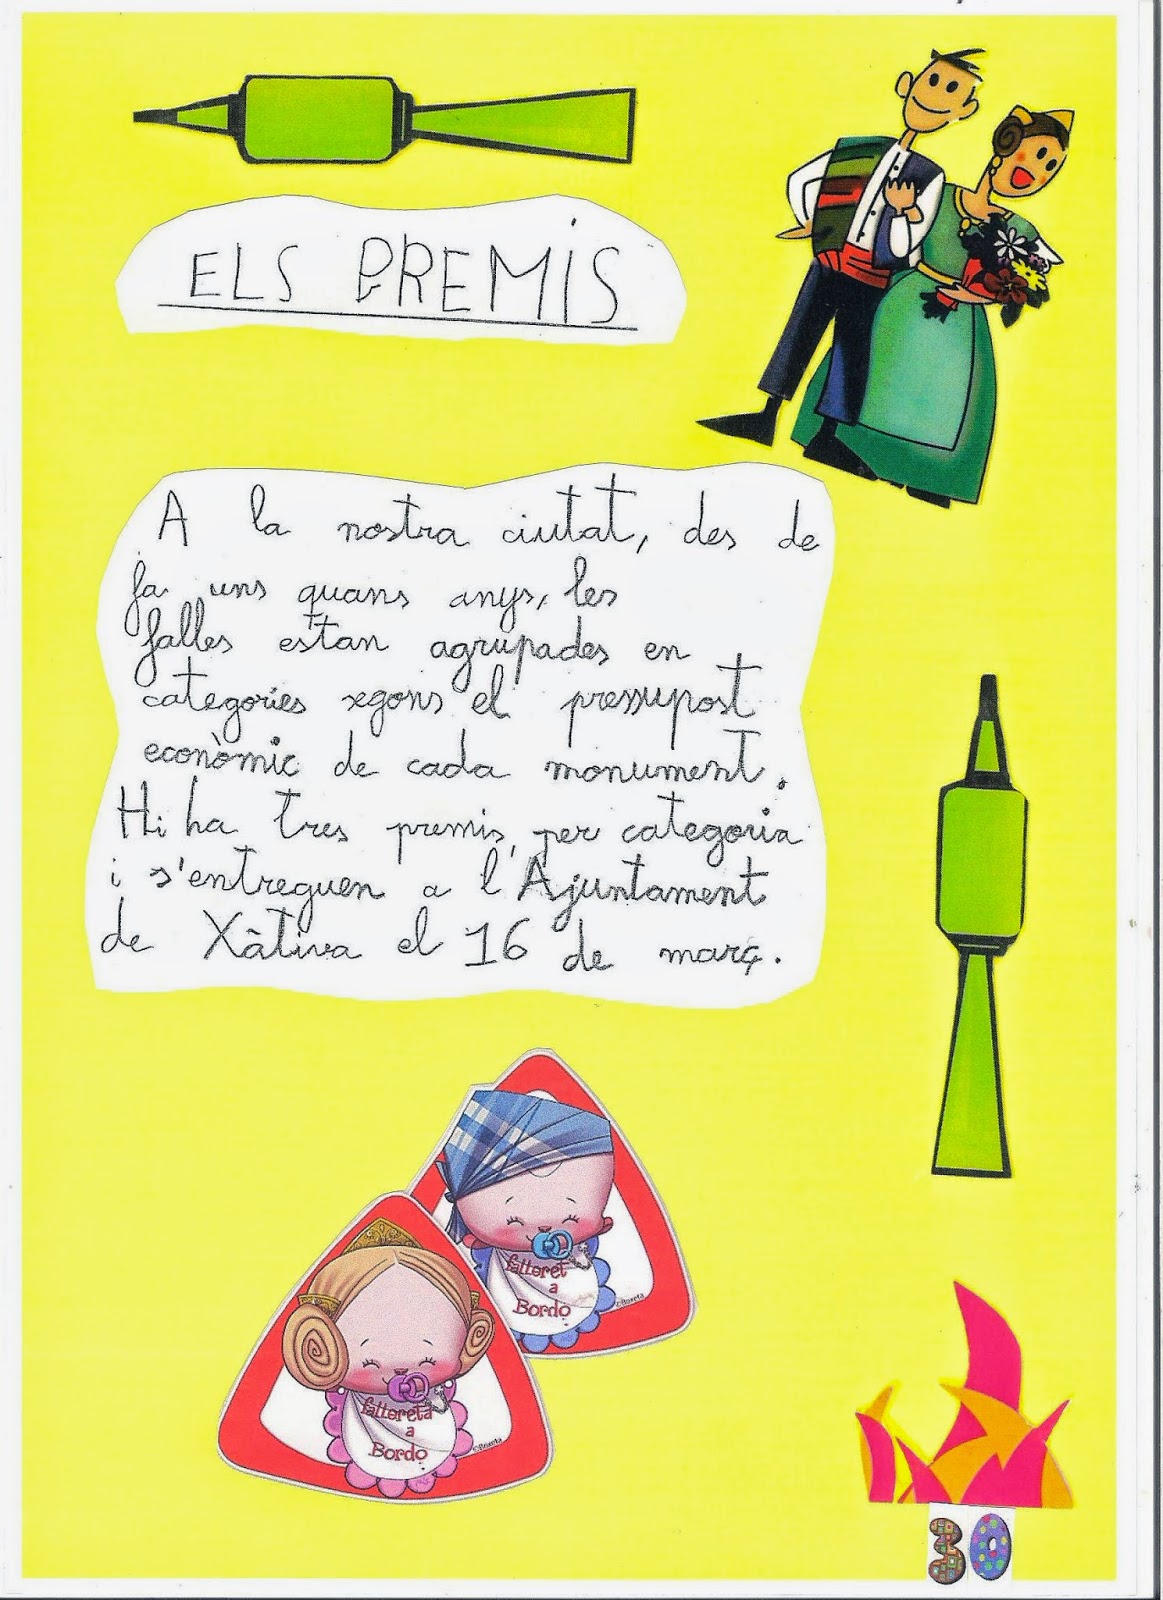 ELS PREMIS
A la nostra ciutat, des de
fa uns quans anys, les
falles estan agrupades en
categories segons el pressupost
econòmic de cada monument.
Hi ha tres premis per categoria
i s'entreguen a l'Ajuntament
de Xàtiva el 16 de març.
falleret
a
Bordo
©Roseta
fallereta
a
Bordo
©Roseta
30